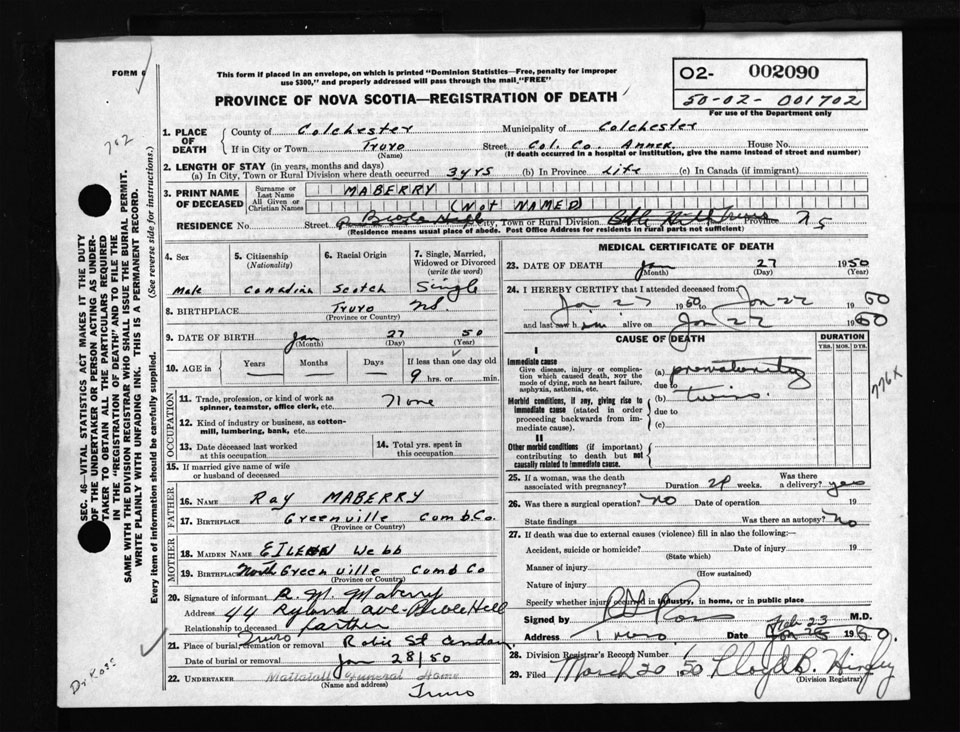 FORM 6
This form if placed in an envelope, on which is printed "Dominion Statistics—Free, penalty for improper
use $300," and properly addressed will pass through the mail, "FREE"
PROVINCE OF NOVA SCOTIA—REGISTRATION OF DEATH
O2- 002090
50-02- 001702
For use of the Department only
702
1. PLACE OF DEATH
County of Colchester Municipality of Colchester
If in City or Town Truro (Name) Street Col. Co. Annex. House No.
(If death occurred in a hospital or institution, give the name instead of street and number)
2. LENGTH OF STAY (in years, months and days)
(a) In City, Town or Rural Division where death occurred 3 yrs (b) In Province Life (c) In Canada (if immigrant)
3. PRINT NAME OF DECEASED
Surname or Last Name MABERRY
All Given or Christian Names (NOT NAMED)
RESIDENCE No. Street City, Town or Rural Division Province NS
(Residence means usual place of abode. Post Office Address for residents in rural parts not sufficient)
4. Sex Male
5. Citizenship (Nationality) Canadian
6. Racial Origin Scotch
7. Single, Married, Widowed or Divorced (write the word) Single
8. BIRTHPLACE Truro NS.
(Province or Country)
9. DATE OF BIRTH Jan 27 50
(Month) (Day) (Year)
10. AGE in Years Months Days If less than one day old
9 hrs. or min.
OCCUPATION
11. Trade, profession, or kind of work as spinner, teamster, office clerk, etc. None
12. Kind of industry or business, as cotton-mill, lumbering, bank, etc.
13. Date deceased last worked at this occupation
14. Total yrs. spent in this occupation
15. If married give name of wife or husband of deceased
FATHER
16. NAME Ray MABERRY
17. BIRTHPLACE Greenville Cumb Co.
(Province or Country)
MOTHER
18. MAIDEN NAME EILEEN Webb
19. BIRTHPLACE North Greenville Cumb Co
(Province or Country)
20. Signature of informant R. M. Maberry
Address 44 Ryland Ave - Bible Hill
Relationship to deceased father
21. Place of burial, cremation or removal Truro Robie St
Date of burial or removal Jan 28/50
22. UNDERTAKER Mattatall Funeral Home
(Name and address) Truro
MEDICAL CERTIFICATE OF DEATH
23. DATE OF DEATH Jan 27 1950
(Month) (Day) (Year)
24. I HEREBY CERTIFY that I attended deceased from:
Jan 27 1950 to Jan 27 1950
and last saw him alive on Jan 27 1950
CAUSE OF DEATH
DURATION
YRS. MOS. DYS.
I
Immediate cause
Give disease, injury or complication which caused death, not the mode of dying, such as heart failure, asphyxia, asthenia, etc.
(a) prematurity
due to
Morbid conditions, if any, giving rise to immediate cause (stated in order proceeding backwards from immediate cause).
(b) twins.
due to
(c)
II
Other morbid conditions (if important) contributing to death but not causally related to immediate cause.
776X
25. If a woman, was the death associated with pregnancy? Duration 28 weeks. Was there a delivery? yes
26. Was there a surgical operation? No Date of operation 19
State findings Was there an autopsy? No
27. If death was due to external causes (violence) fill in also the following:—
Accident, suicide or homicide? Date of injury 19
(State which)
Manner of injury
(How sustained)
Nature of injury
Specify whether injury occurred in industry, in home, or in public place
Signed by Ross M.D.
Address Truro Date Feb 23 1950.
28. Division Registrar's Record Number
29. Filed March 20 1950 Lloyd B.
(Division Registrar)
SEC. 46—VITAL STATISTICS ACT MAKES IT THE DUTY
OF THE UNDERTAKER OR PERSON ACTING AS UNDER-
TAKER TO OBTAIN ALL THE PARTICULARS REQUIRED
IN THE "REGISTRATION OF DEATH" AND TO FILE THE
SAME WITH THE DIVISION REGISTRAR WHO SHALL ISSUE THE BURIAL PERMIT.
WRITE PLAINLY WITH UNFADING INK. THIS IS A PERMANENT RECORD.
Every item of information should be carefully supplied. (See reverse side for instructions.)
Dr Ross